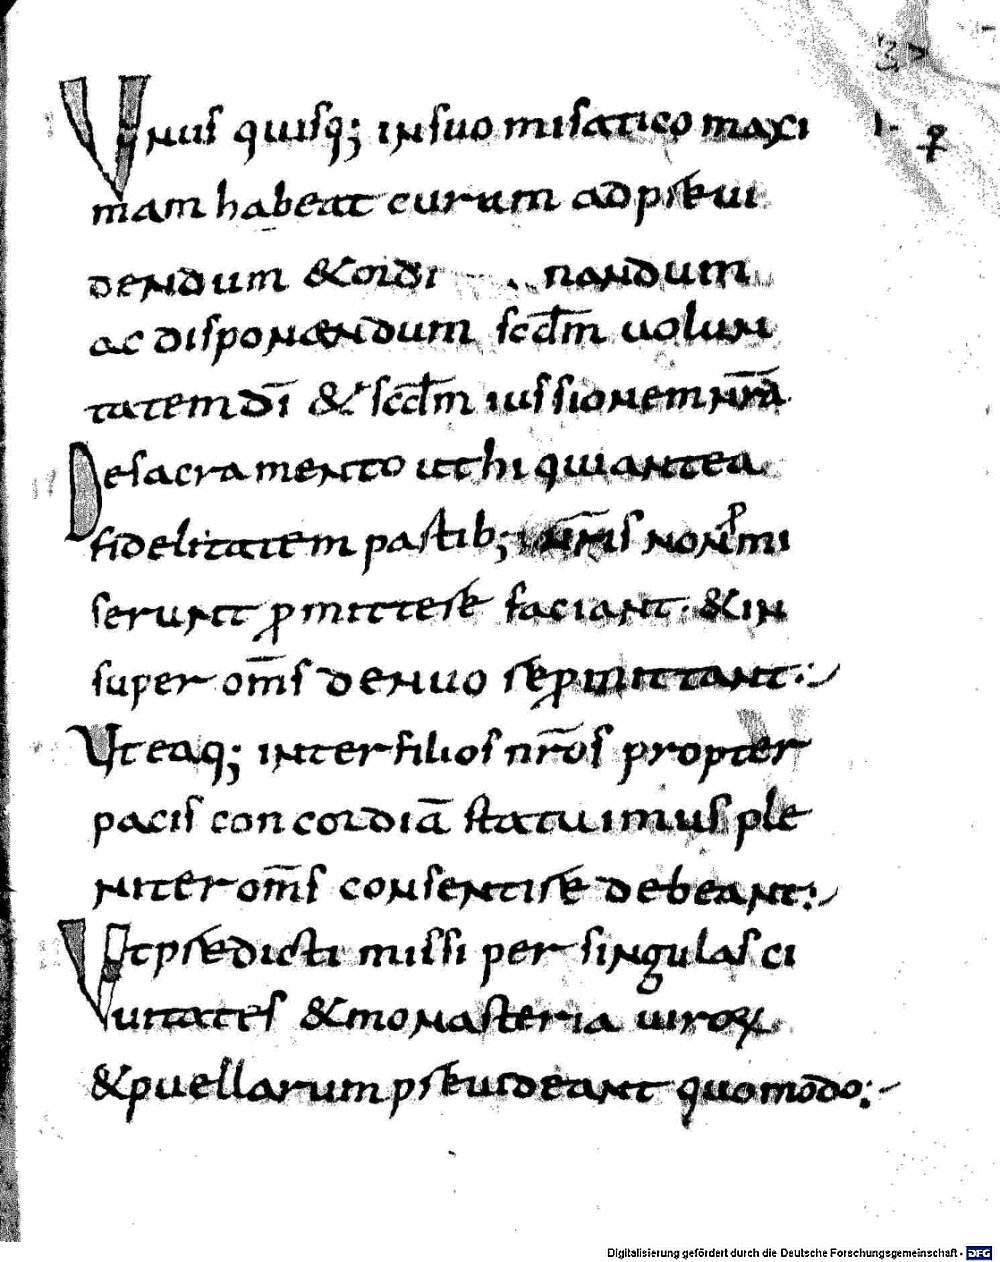 Vnus quisq; in suo misatico maxi
mam habeat curam ad p͛eui
dendum & ordi nandum
ac disponendum scdm̄ uolun
tatem dī & scdm̄ iussionem nr̄ā
De sacramento ut hi qui antea
fidelitatem partib; nr̄is non p̱mi
serunt ꝓmittere faciant. & in
super om̄s denuo reꝓmittant:
Vt eaq; inter filios nr̄os propter
pacis concordiā statuimus ple
niter om̄s consentire debeant:
Vt p͛edicti missi per singulas ci
uitates & monasteria uiroꝝ
& puellarum p͛euideant quomodo:
Digitalisierung gefördert durch die Deutsche Forschungsgemeinschaft - DFG